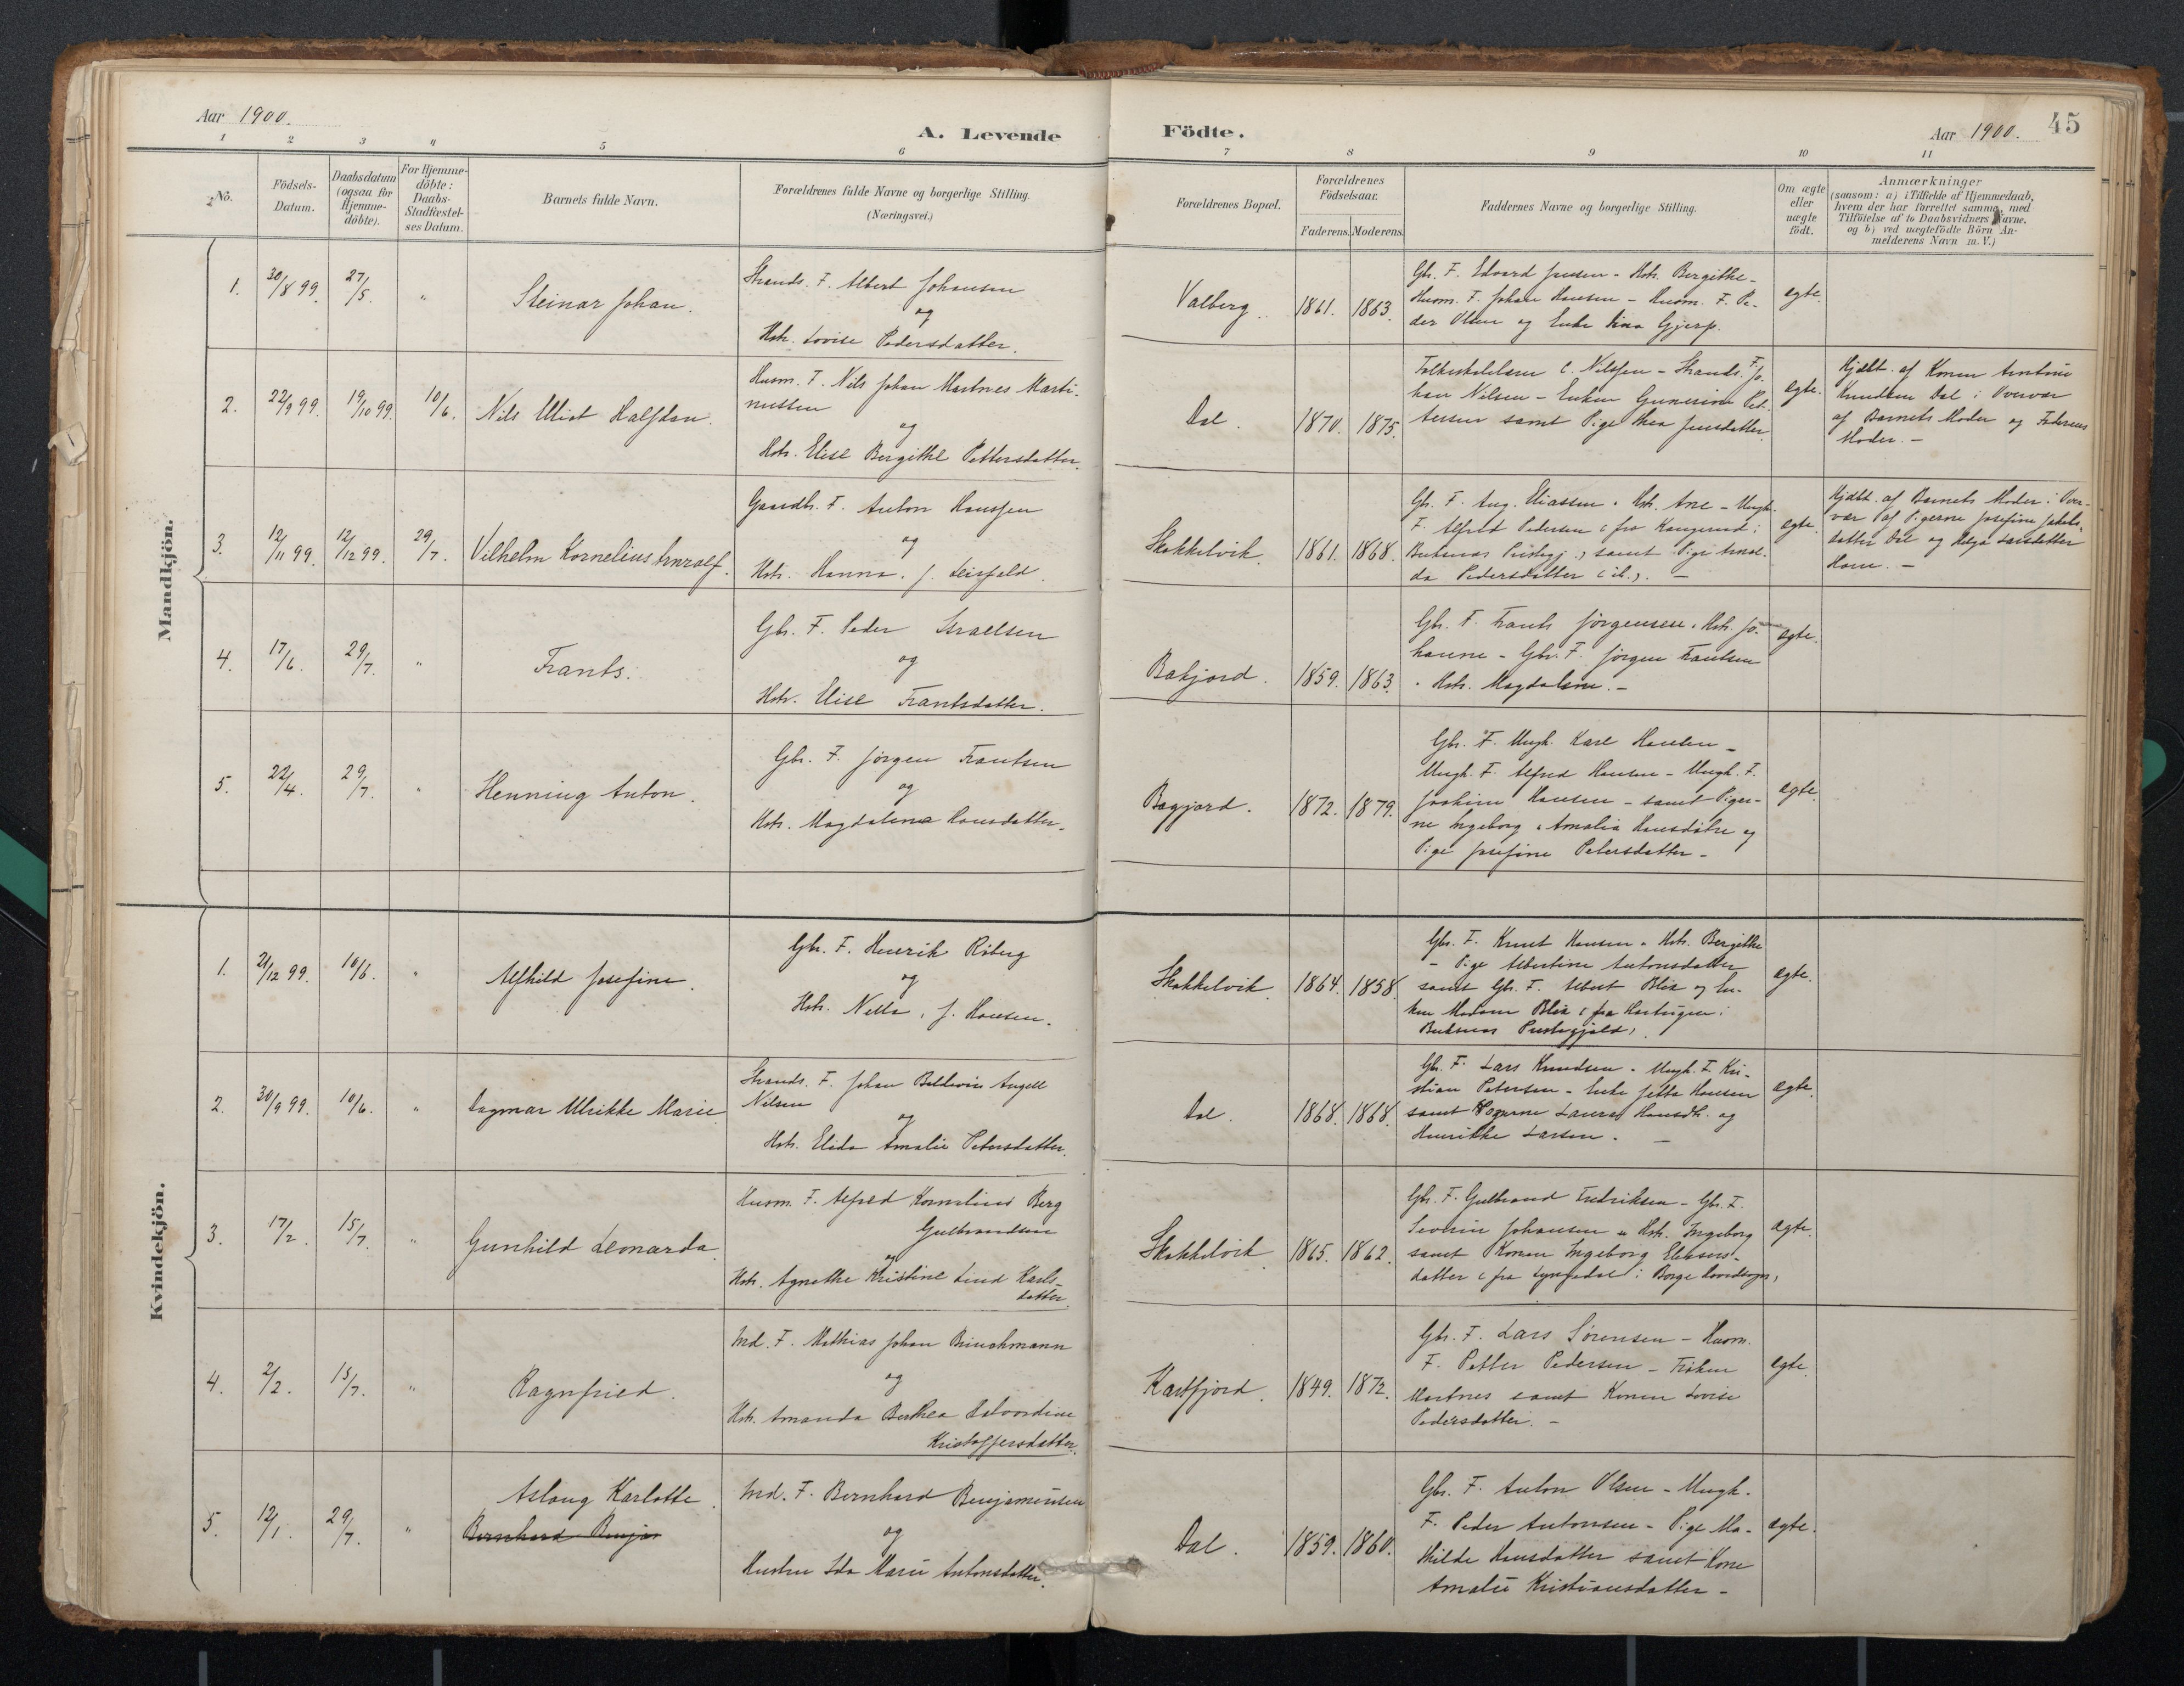 Aar 1900.
A. Levende
Födte.
Aar 1900.
45
1 2 3 4 5 6 7 8 9 10 11
No.
Födsels-
Datum.
Daabsdatum
(ogsaa for
Hjemme-
döbte).
For Hjemme-
döbte:
Daabs-
Stadfæstel-
ses Datum.
Barnets fulde Navn.
Forældrenes fulde Navne og borgerlige Stilling.
(Næringsvei.)
Forældrenes Bopæl.
Forældrenes
Födselsaar.
Faderens. Moderens.
Faddernes Navne og borgerlige Stilling.
Om ægte
eller
uægte
födt.
Anmærkninger
(saasom: a) i Tilfælde af Hjemmedaab,
hvem der har forrettet samme, med
Tilföielse af to Daabsvidners Navne.
og b) ved uægtefödte Börn An-
melderens Navn m. V.)
Mandkjön.
1. 30/8 99. 27/5. " Steinar Johan.
Strands. F. Albert Johansen
og
Hstr. Lovise Pedersdatter.
Valberg. 1861. 1863.
Gbr. F. Edvard Jensen - Hstr. Bergithe -
Husm. F. Johan Hansen - Husm. F. Pe-
der Olsen og Enke Lina Gjerp.
ægte.
2. 22/9 99. 19/10 99. 10/6. Nils Uliat Halfdan.
Husm. F. Nils Johan Martnes Marti-
nussen
og
Hstr. Elise Bergithe Pettersdatter.
Dal. 1870. 1875.
Folkeskolelærer C. Nilssen - Strands. F. Jo-
han Nilsen - Enken Gunerine Pet-
tersen samt Pige Thea Jensdatter.
ægte.
Hjdbt. af Konen Arntine
Knudsen Dal i Overvær
af Barnets Moder og Faderens
Moder. -
3. 12/11 99. 12/12 99. 29/7. Vilhelm Kornelius Annralf.
Gaardbr. F. Anton Hanssen
og
Hstr. Hanna. f. Leirfald.
Skokkelvik. 1861. 1868.
Gbr. F. Aug. Eliassen. Hstr. Ane - Ungk.
F. Alfred Pedersen (fra Kangerud i
Buksnes Præstegj.) samt Pige Arnol-
da Pedersdatter (id.). -
ægte.
Hjdbt. af Barnets Moder i Over-
vær af Pigerne Josefine Jakobs-
datter Dal og Helga Larsdatter
Horn. -
4. 17/6. 29/7. " Frants.
Gbr. F. Peder Israelsen
og
Hstr. Elise Frantsdatter.
Bakjord. 1859. 1863.
Gbr. F. Frants Jörgensen. Hstr. Jo-
hanne - Gbr. F. Jörgen Frantsen
" Hstr. Magdalene. -
ægte.
5. 22/4. 29/7. " Henning Anton.
Gbr. F. Jörgen Frantsen
og
Hstr. Magdalena Hansdatter.
Bagjord. 1872. 1879.
Gbr. F. Ungk. Karl Hansen -
Ungk. F. Alfred Hansen - Ungk. F.
Joakim Hansen - samt Piger-
ne Ingeborg & Amalia Hansdötre og
Pige Josefine Petersdatter -
ægte.
Kvindekjön.
1. 21/12 99. 10/6. " Alfhild Josefine.
Gbr. F. Henrik Röberg
og
Hstr. Nella, f. Hansen.
Skokkelvik. 1864. 1858.
Gbr. F. Knut Hansen. Hstr. Bergithe
- Pige Albertine Antonsdatter
samt Gbr. F. Albert Blix og En-
ken Madam Blix (fra Hartvigen i
Buksnes Præstegjæld).
ægte.
2. 30/9 99. 10/6. " Dagmar Ulrikke Marie
Strands. F. Johan Baldevin Angell
Nilsen
og
Hstr. Elida Amalie Petersdatter.
Dal. 1868. 1868.
Gbr. F. Lars Knudsen. Ungk. F. Kri-
stian Petersen - Enke Jetta Hansen
samt Pigerne Laura Hansdtr. og
Henrikke Larsen. -
ægte.
3. 17/2. 15/7. " Gunhild Leonarda.
Husm. F. Alfred Kornelius Berg
Gulbrandsen
og
Hstr. Agnethe Kristine Lind Karls-
datter.
Skokkelvik. 1865. 1862.
Gbr. F. Gulbrand Fredriksen - Gbr. F.
Severin Johansen & Hstr. Ingeborg
samt Konen Ingeborg Eliasers-
datter (fra Lyngedal i Borge hovedsogn)
ægte.
4. 2/2. 15/7. " Ragnfried.
Ind. F. Mathias Johan Brinchmann
og
Hstr. Amanda Berthea Halvordine
Kristoffersdatter.
Kartfjord. 1849. 1872.
Gbr. F. Lars Sörensen - Husm.
F. Petter Pedersen - Fröken
Martnes samt Konen Lovise
Pedersdatter. -
ægte.
5. 12/1. 29/7. " Aslaug Karlotte.
Bernhard Benja
Ind. F. Bernhard Benjaminsen
og
Hustru Ida Marie Antonsdatter.
Dal. 1859. 1860.
Gbr. F. Anton Olsen - Ungk.
F. Peder Antonsen - Pige Ma-
thilde Hansdatter samt Kone
Amalie Kristiansdatter -
ægte.